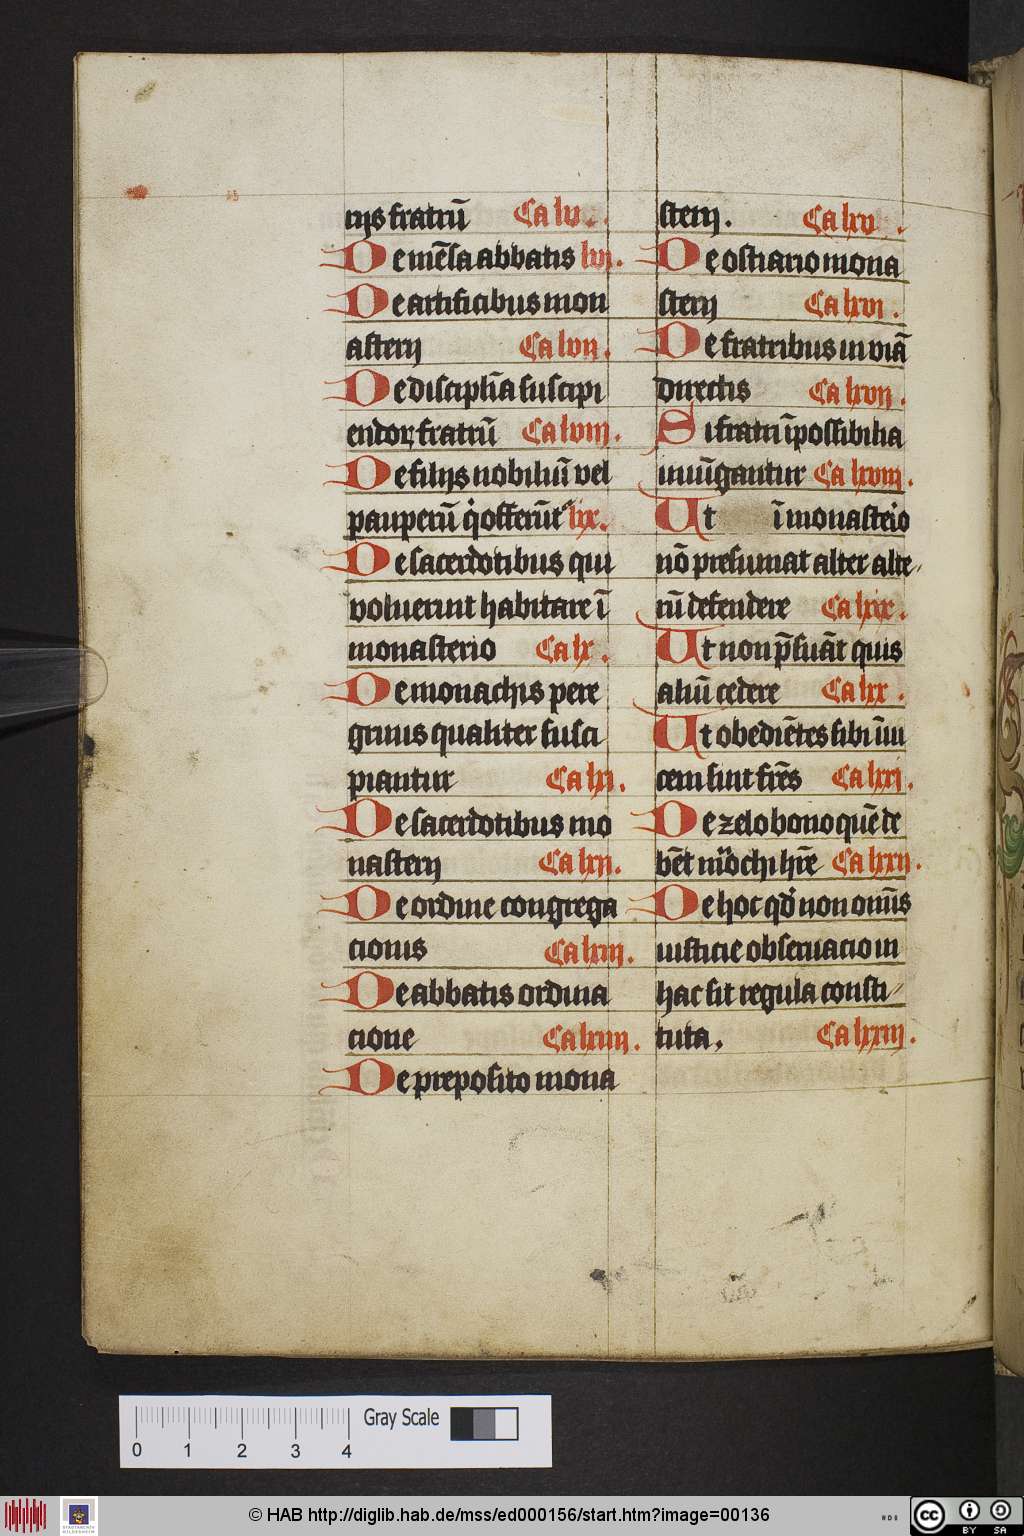 rijs fratrū Ca lv.
De mēsa abbatis lvi.
De artificibus mon
asterij Ca lvii.
De discipl̄ia suscipi
endoꝝ fratrū Ca lviii.
De filijs nobiliū vel
pauperū q̇ offerūt lix.
De sacerdotibus qui
voluerint habitare ī
monasterio Ca lx.
De monachis pere
grinis qualiter susci
piantur Ca lxi.
De sacerdotibus mo
nasterij Ca lxii.
De ordine congrega
cionis Ca lxiii.
De abbatis ordina
cione Ca lxiiii.
De preposito mona
sterij. Ca lxv.
De ostiario mona
sterij Ca lxvi.
De fratribus in viā
directis Ca lxvii.
Si fratri īpossibilia
iniūgantur Ca lxviii.
Ut ī monasterio
nō presumat alter alte
rū defendere Ca lxix.
Ut non p̄suāt quis
aliū cedere Ca lxx.
Ut obediētes sibi īui
cem sint fr̄es Ca lxxi.
De zelo bono quē de
bēt hr̄e Ca lxxii.
De hoc qd̓ non om̄is
iusticie obseruacio in
hac sit regula consti
tuta. Ca lxxiii.
0 1 2 3 4 Gray Scale
© HAB http://diglib.hab.de/mss/ed000156/start.htm?image=00136
cc BY SA